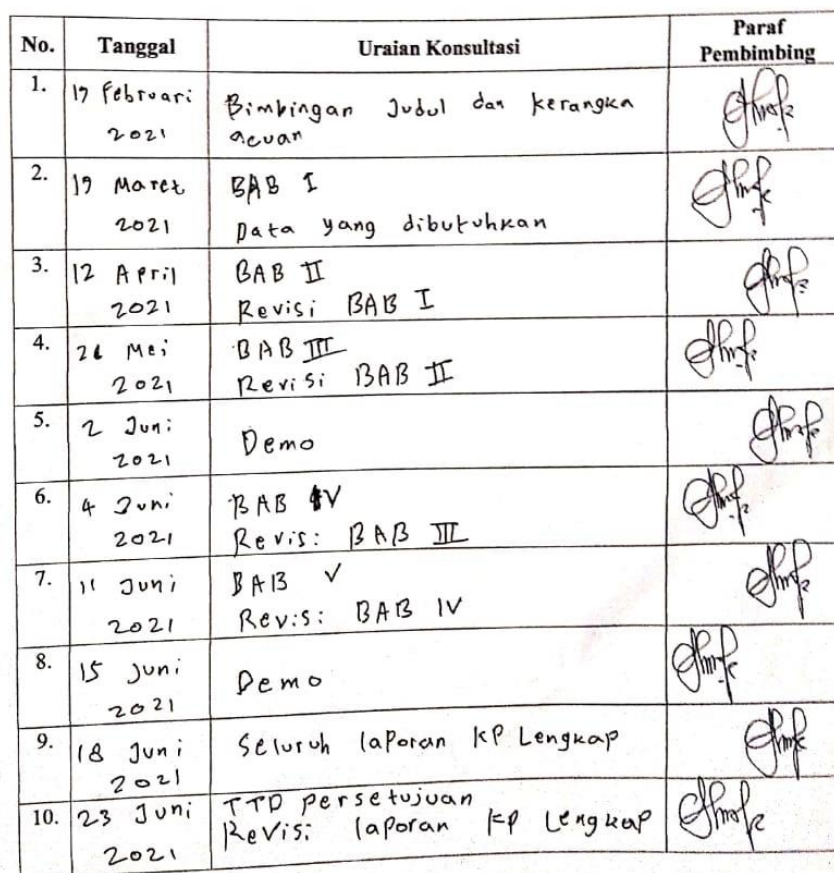 No. Tanggal Uraian Konsultasi Paraf Pembimbing
1. 17 Februari 2021 Bimbingan Judul dan kerangka
acuan
2. 19 Maret 2021 BAB I
Data yang dibutuhkan
3. 12 April 2021 BAB II
Revisi BAB I
4. Mei 2021 BAB III
Revisi BAB II
5. 2 Juni 2021 Demo
6. 4 Juni 2021 BAB IV
Revisi BAB III
7. 11 Juni 2021 BAB V
Revisi BAB IV
8. 15 Juni 2021 Demo
9. 18 Juni 2021 Seluruh laporan KP Lengkap
10. 23 Juni 2021 TTD persetujuan
Revisi laporan KP Lengkap